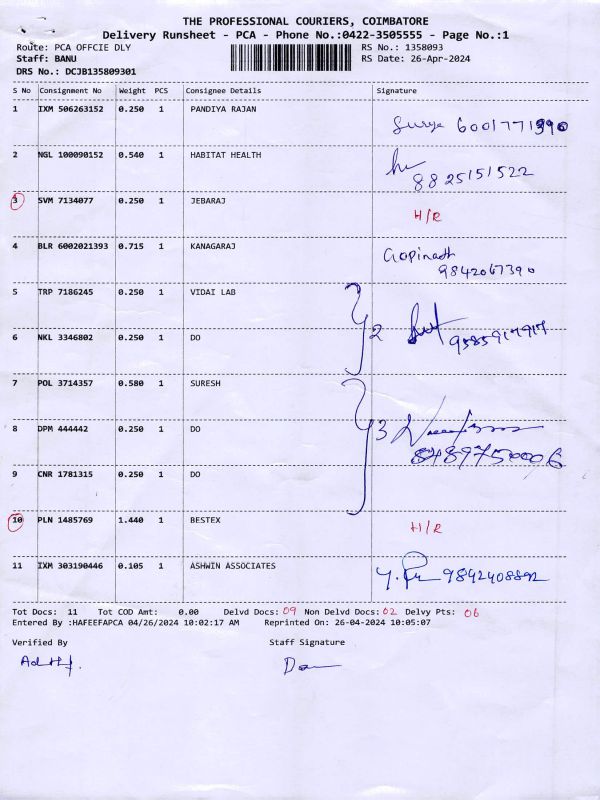 THE PROFESSIONAL COURIERS, COIMBATORE
Delivery Runsheet - PCA - Phone No.:0422-3505555 - Page No.:1
Route: PCA OFFCIE DLY RS No.: 1358093
Staff: BANU RS Date: 26-Apr-2024
DRS No.: DCJB135809301
S No Consignment No Weight PCS Consignee Details Signature
1 IXM 506263152 0.250 1 PANDIYA RAJAN
Surya 6001771390
2 NGL 100090152 0.540 1 HABITAT HEALTH
8825151522
3 SVM 7134077 0.250 1 JEBARAJ H/R
4 BLR 6002021393 0.715 1 KANAGARAJ Gopinath
9842067390
5 TRP 7186245 0.250 1 VIDAI LAB
2
6 NKL 3346802 0.250 1 DO 9585917917
7 POL 3714357 0.580 1 SURESH
8 DPM 444442 0.250 1 DO 3
8489750006
9 CNR 1781315 0.250 1 DO
10 PLN 1485769 1.440 1 BESTEX H/R
11 IXM 303190446 0.105 1 ASHWIN ASSOCIATES 9842408892
Tot Docs: 11 Tot COD Amt: 0.00 Delvd Docs: 09 Non Delvd Docs: 02 Delvy Pts: 06
Entered By :HAFEEFAPCA 04/26/2024 10:02:17 AM Reprinted On: 26-04-2024 10:05:07
Verified By Staff Signature